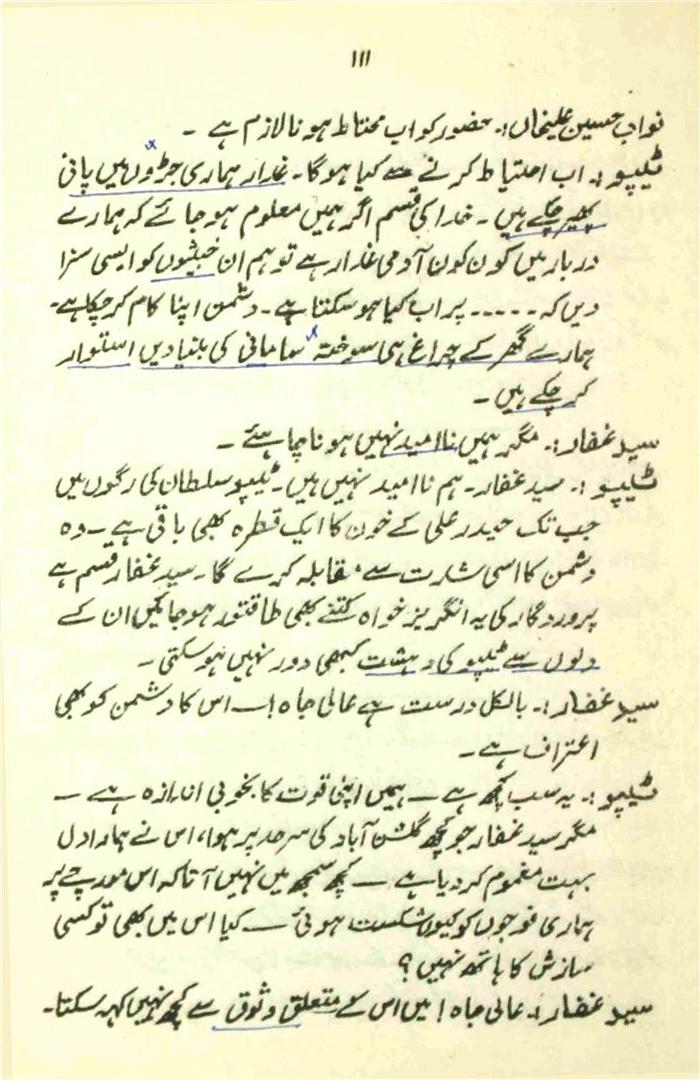 ۱۱۱
نواب حسین علیخاں:۔ حضور کو اب محتاط ہونا لازم ہے ۔
ٹیپو:۔ اب احتیاط کرنے سے کیا ہوگا۔ غدار ہماری جڑوں میں پانی
پھیر چکے ہیں ۔ خدا کی قسم اگر ہمیں معلوم ہو جائے کہ ہمارے
دربار میں کون کون آدمی غدار ہے تو ہم ان خبیثوں کو ایسی سزا
دیں کہ ۔۔۔۔۔ پر اب کیا ہو سکتا ہے۔ دشمن اپنا کام کر چکا ہے۔
ہمارے گھر کے چراغ ہی سوختہ سامانی کی بنیادیں استوار
کر چکے ہیں ۔
سید غفار:۔ مگر ہمیں ناامید نہیں ہونا چاہئے ۔
ٹیپو:۔ سید غفار۔ ہم ناامید نہیں ہیں۔ ٹیپو سلطان کی رگوں میں
جب تک حیدر علی کے خون کا ایک قطرہ بھی باقی ہے ۔ وہ
دشمن کا اسی شدت سے مقابلہ کرے گا۔ سید غفار قسم ہے
پروردگار کی یہ انگریز خواہ کتنے بھی طاقتور ہو جائیں ان کے
دلوں سے ٹیپو کی دہشت کبھی دور نہیں ہو سکتی ۔
سید غفار:۔ بالکل درست ہے عالی جاہ !۔ اس کا دشمن کو بھی
اعتراف ہے ۔
ٹیپو:۔ یہ سب کچھ ہے ۔ ہمیں اپنی قوت کا بخوبی اندازہ ہے ۔
مگر سید غفار جو کچھ گلشن آباد کی سرحد پر ہوا، اس نے ہمارا دل
بہت مغموم کر دیا ہے ۔ کچھ سمجھ میں نہیں آتا کہ اس مورچے پر
ہماری فوجوں کو کیوں شکست ہوئی ۔ کیا اس میں بھی تو کسی
سازش کا ہاتھ نہیں ؟
سید غفار:۔ عالی جاہ ! میں اس کے متعلق وثوق سے کچھ نہیں کہہ سکتا۔